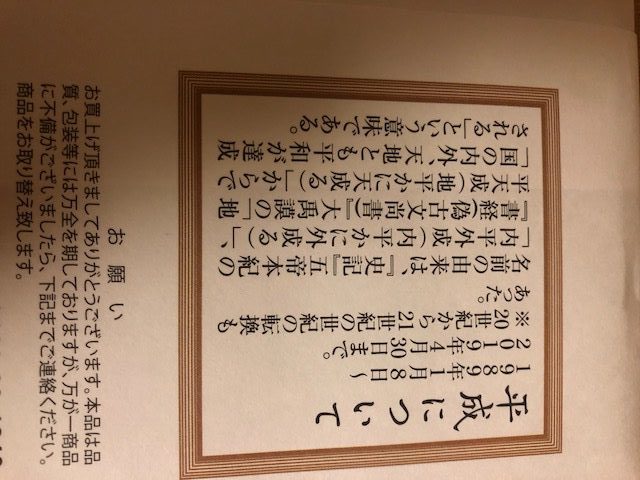 平成について
1989年1月8日〜
2019年4月30日まで。
※20世紀から21世紀の世紀の転換も
あった。
名前の由来は、『史記』五帝本紀の
「内平外成(内平かに外成る)」、
『書経(偽古文尚書)』大禹謨の「地
平天成(地平かに天成る)」からで
「国の内外、天地とも平和が達成
される」という意味である。
お願い
お買上げ頂きましてありがとうございます。本品は品
質、包装等には万全を期しておりますが、万が一商品
に不備がございましたら、下記までご連絡ください。
商品をお取り替え致します。